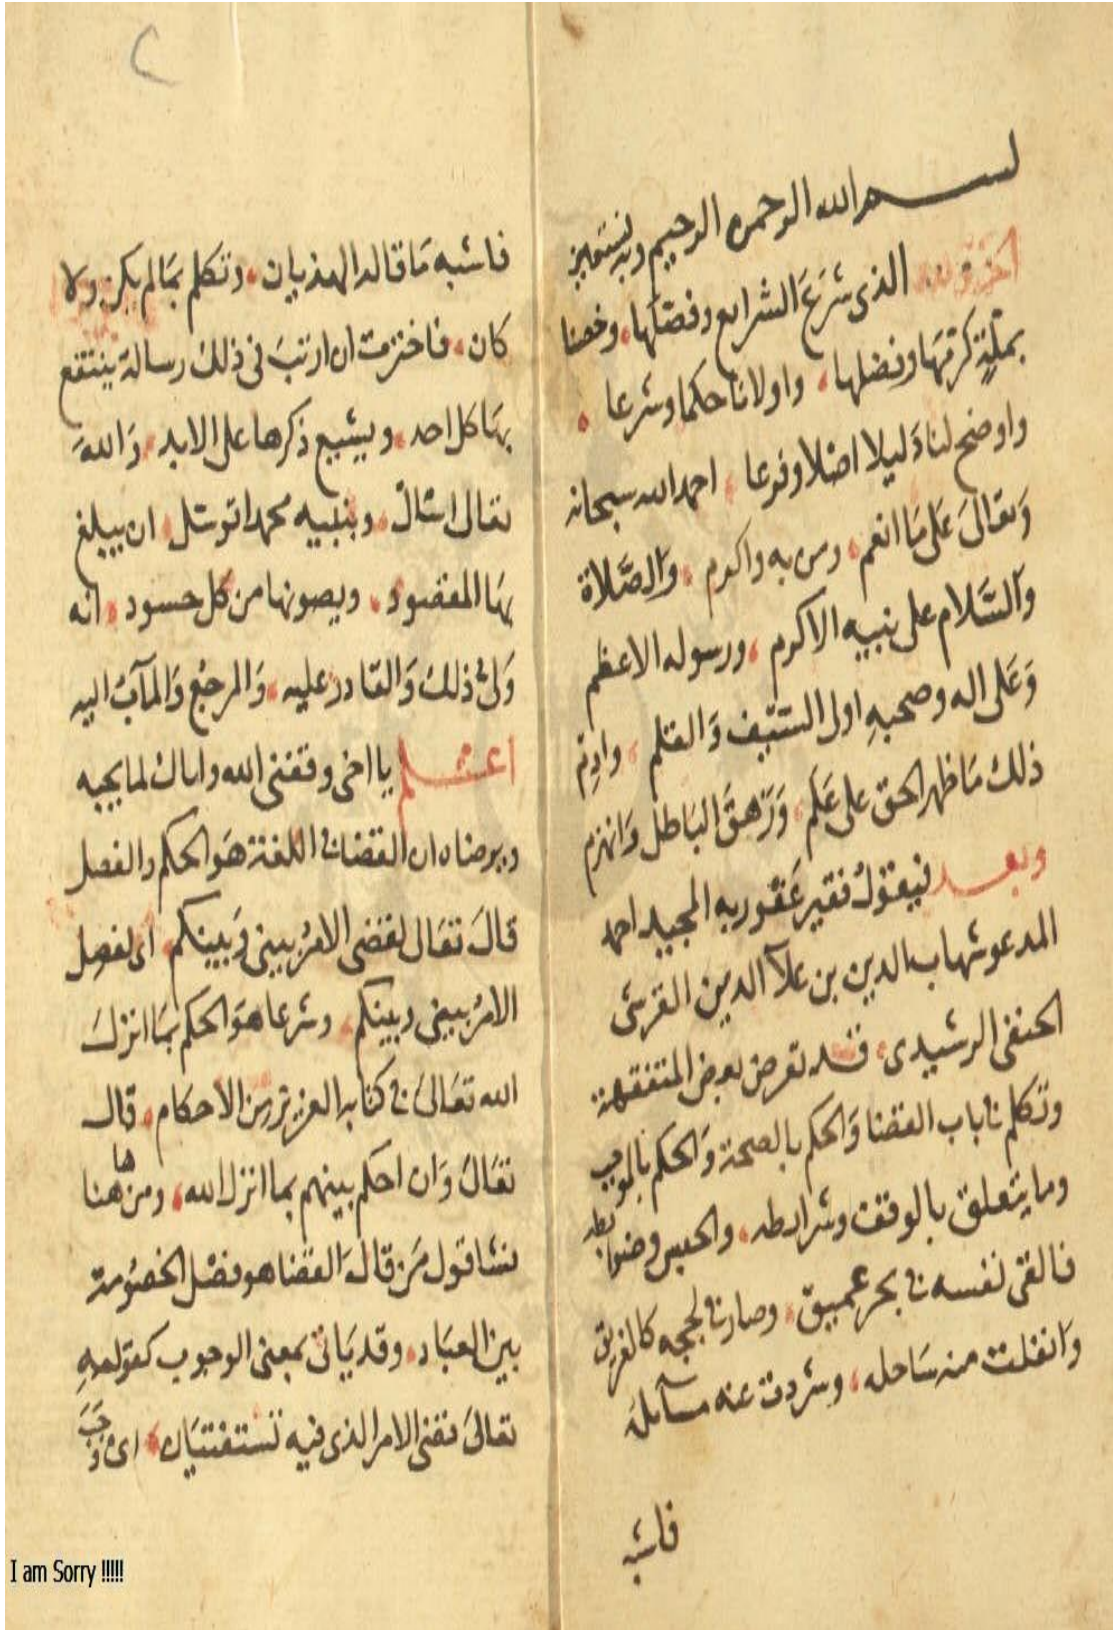 بسم الله الرحمن الرحيم وبه نستعين
الذى شرع الشرايع وفصلها، وخصنا
بملة كرمها وفضلها، واولانا حكما وشرعا
واوضح لنا دليلا اصلا وفرعا، احمد الله سبحانه
وتعالى على ما انعم، ومن به واكرم، والصلاة
والسلام على نبيه الاكرم، ورسوله الاعظم
وعلى اله وصحبه اولى السيف والقلم، وادم
ذلك ما ظهر الحق على علم، وزهق الباطل وانهزم
وبعد فيقول فقير عفو ربه المجيد احمد
المدعو شهاب الدين بن علآ الدين القرشى
الحنفى الرشيدى، قد تعرض بعض المتفقهة
وتكلم فى باب القضا والحكم بالصحة والحكم بالموجب
وما يتعلق بالوقف وشرايطه، والحبس وضوابطه
فالقى نفسه فى بحر عميق، وصار فى لججه كالغريق
وانفلت منه ساحله، وشردت عنه مسآيله
فاشبه
فاشبه ما قاله الهذيان، وتكلم بما لم يكن ولا
كان، فاخترت ان ارتب فى ذلك رسالة ينتفع
بها كل احد، ويشيع ذكرها على الابد، والله
تعالى اسال، وبنبيه محمد اتوسل، ان يبلغ
بها المقصود، ويصونها من كل حسود، انه
ولى ذلك والقادر عليه، والمرجع والمآب اليه
اعلم يا اخى وفقنى الله واياك لما يحبه
ويرضاه ان القضا فى اللغة هو الحكم والفصل
قال تعالى لقضى الامر بينى وبينكم، اى لفصل
الامر بينى وبينكم، وشرعا هو الحكم بما انزل
الله تعالى فى كتابه العزيز من الاحكام، قال
تعالى وان احكم بينهم بما انزل الله، ومن هاهنا
نشا قول من قال القضا هو فصل الخصومة
بين العباد، وقد ياتى بمعنى الوجوب كقوله
تعالى قضى الامر الذى فيه تستفتيان، اى وجب
I am Sorry !!!!!